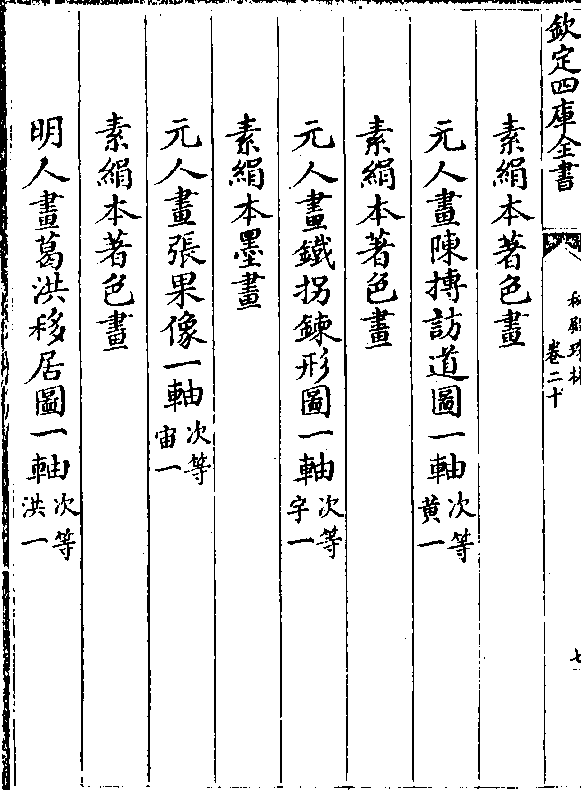 欽定四庫全書
秘殿珠林
卷二十
七
素絹本著色畫
元人畫陳摶訪道圖一軸次等黃一
素絹本著色畫
元人畫鐵拐鍊形圖一軸次等宇一
素絹本墨畫
元人畫張果像一軸次等宙一
素絹本著色畫
明人畫葛洪移居圖一軸次等洪一